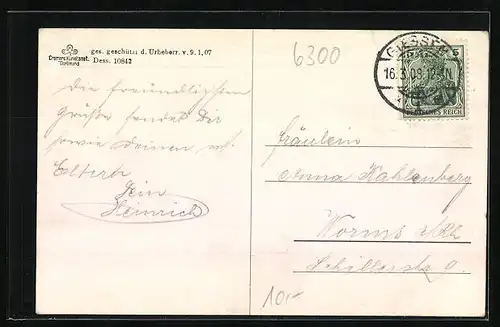 Cramers Kunstanst. Dortmund
ges. geschützt d. Urheberr. v. 9. 1. 07
Dess. 10842
6300
GIESSEN
16.3.09. 12-1N
5
DEUTSCHES REICH
Die freundlichsten
Grüße sendet Dir
sowie Deinen w.
Eltern
Dein
Heinrich
Fräulein
Anna Kahlenberg
Worms a/Rh
Schillerstr 9.
10,-